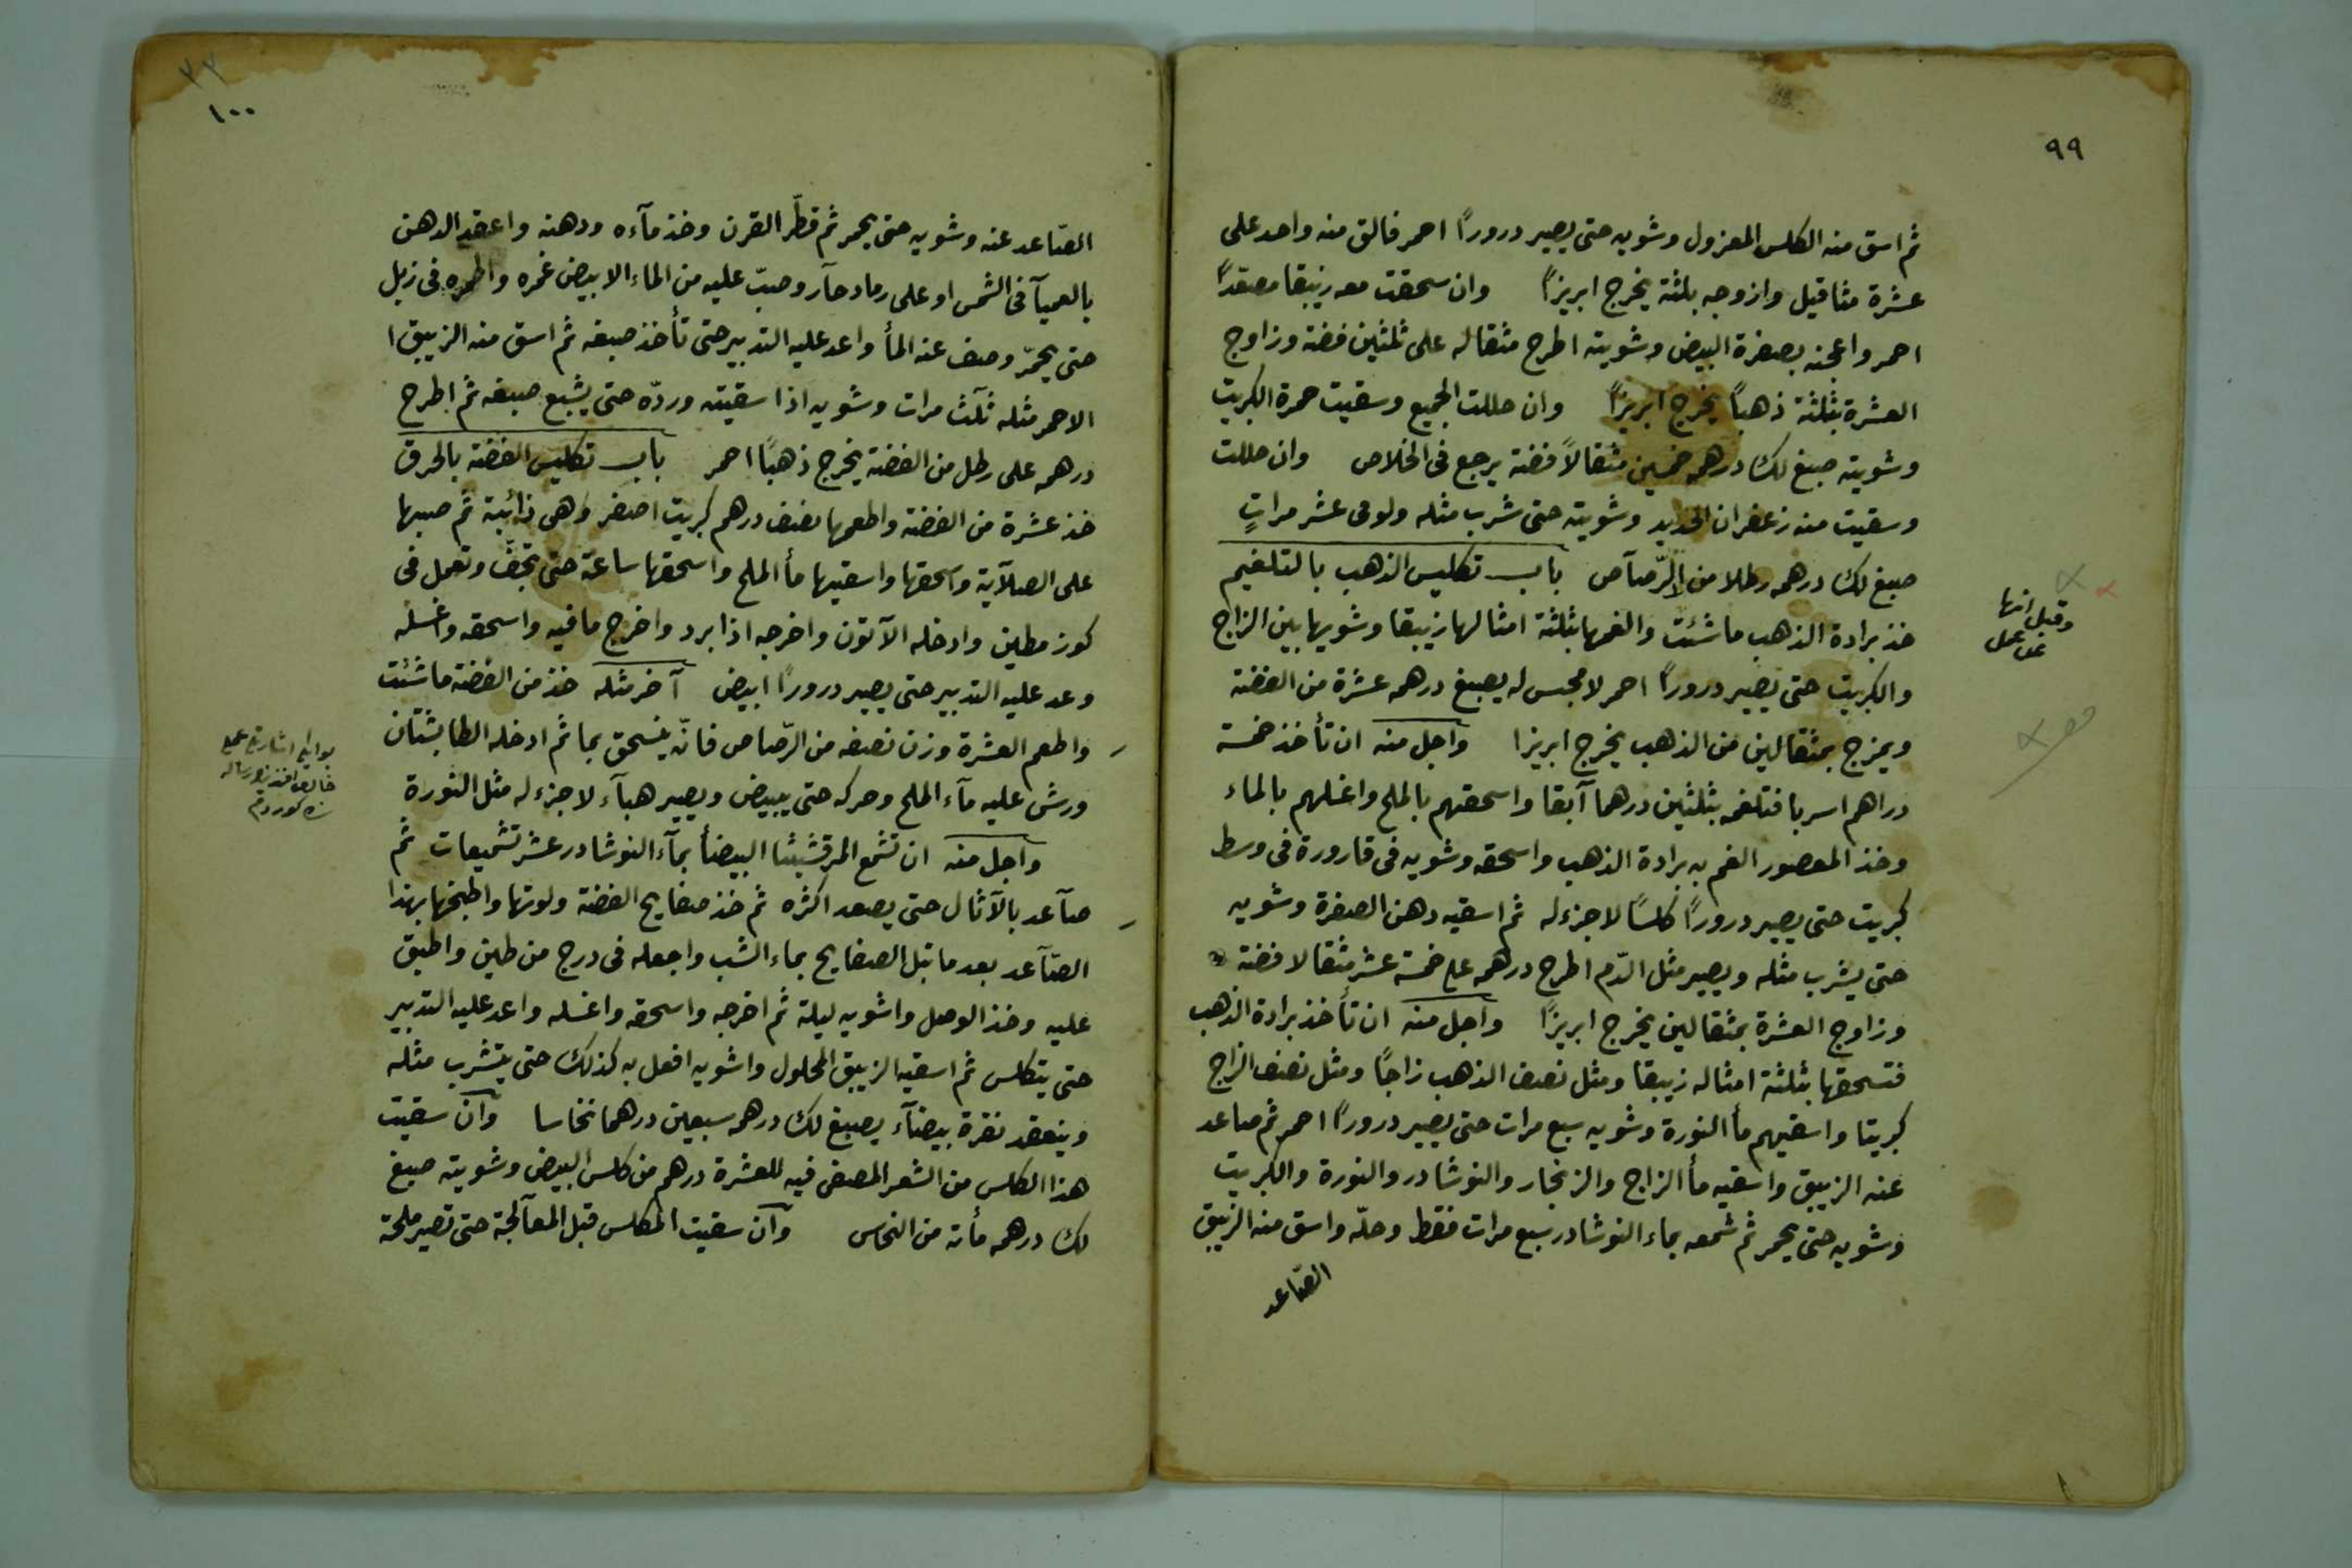 ٩٩
ثم اسق منه الكلس المعزول وشويه حتى يصير دروراً احمر فالق منه واحد على
عشرة مثاقيل وازوجه بلثة يخرج ابريزاً وان سحقت معه زيبقا معقداً
احمر واعجنه بصفرة البيض وشويته اطرح مثقاله على ثلثين فضة وزاوج
العشرة بثلثة ذهباً يخرج ابريزاً وان حللت الجميع وسقيت حمرة الكبريت
وشويته صبغ لك درهمه خمسين مثقالاً فضة يرجع فى الخلاص وان حللت
وسقيت منه زعفران الحديد وشويته حتى شرب مثله ولو فى عشر مراتٍ
صبغ لك درهمه رطلا من الرّصآص باب تكليس الذهب بالتلغيم
خذ برادة الذهب ما شئت والغمها بثلثة امثالها زيبقا وشويها بين الزاج
والكبريت حتى يصير دروراً احمر لا مجس له يصبغ درهمه عشرة من الفضة
ويمزج بمثقالين من الذهب يخرج ابريزا واجل منه ان تأخذ خمسة
دراهم اسربا فتلغمه بثلثين درهما آبقا واسحقهم بالملح واغسلهم بالماء
وخذ المعصور الغم به برادة الذهب واسحقه وشويه فى قارورة فى وسط
كبريت حتى يصير دروراً كلسًا لا جزء له ثم اسقيه دهن الصفرة وشويه
حتى يشرب مثله ويصير مثل الدّم اطرح درهمه على خمسة عشر مثقالا فضة
وزاوج العشرة بمثقالين يخرج ابريزاً واجل منه ان تأخذ برادة الذهب
فتسحقها بثلثة امثاله زيبقا ومثل نصف الذهب زاجًا ومثل نصف الزاج
كبريتا واسقيهم مأ النورة وشويه سبع مرات حتى يصير دروراً احمر ثم صاعد
عنه الزيبق واسقيه مأ الزاج والزنجار والنوشادر والنورة والكبريت
وشويه حتى يحمر ثم شمعه بماء النوشادر سبع مرات فقط وحلّه واسق منه الزيبق
الصّاعد
وقيل انها
١٠٠
الصّاعد عنه وشويه حتى يحمر ثم قطّر القرن وخذ مآءه ودهنه واعقد الدهن
بالعميآ فى الشمس او على رماد حآر وصبّ عليه من الماء الابيض غمره واطمره فى زبل
حتى يحمّر وصف عنه المأ واعد عليه التدبير حتى تأخذ صبغه ثم اسق منه الزيبق ا
الاحمر مثله ثلٓث مرات وشويه اذا سقيته وردّه حتى يشبع صبغه ثم اطرح
درهمه على رطل من الفضة يخرج ذهباً احمر باب تكليس الفضة بالحرق
خذ عشرة من الفضة واطعمها نصف درهم كبريت اصفر وهى ذائبة ثم صبها
على الصلآية واسحقها واسقيها مأ الملح واسحقها ساعة حتى تجفّ وتعمل فى
كوز مطين وادخله الآتون واخرجه اذا برد واخرج ما فيه واسحقه واغسله
وعد عليه التدبير حتى يصير دروراً ابيض آخر مثله خذ من الفضة ما شئت
واطعم العشرة وزن نصفه من الرّصاص فانّه ينسحق بما ثم ادخله الطابشتان
ورش عليه مآء الملح وحركه حتى يبيض ويصير هبآء لا جزء له مثل النورة
واجل منه ان تشمع المرقشيثا البيضأ بمآء النوشادر عشر تشميعات ثم
صآعد بالآثال حتى يصعد اكثره ثم خذ صفايح الفضة ولوتها واطبخها بهذا
الصآعد بعد ما تبل الصفايح بماء الشب واجعله فى درج من طين واطبق
عليه وخذ الوصل واشويه ليلة ثم اخرجه واسحقه واغسله واعد عليه التدبير
حتى يتكلس ثم اسقيه الزيبق المحلول واشويه افعل به كذلك حتى يتشرب مثله
وينعقد نقرة بيضآء يصبغ لك درهمه سبعين درهما نحاسا وآن سقيت
هذا الكلس من الشعر المصفى فيه للعشرة درهم من كلس البيض وشويته صبغ
لك درهمه مأة من النحاس وآن سقيت المكلس قبل المعآلجة حتى تصير ملحة